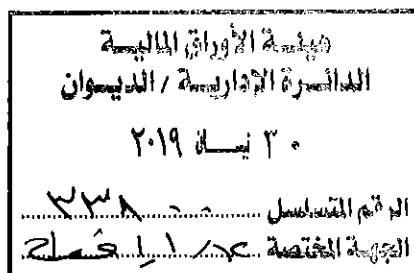 هيئة الأوراق المالية
الدائرة الإدارية / الديوان
٣٠ نيسان ٢٠١٩
الرقم المتسلسل ٣٣٨٠٠
الجهة المختصة الإفصاح